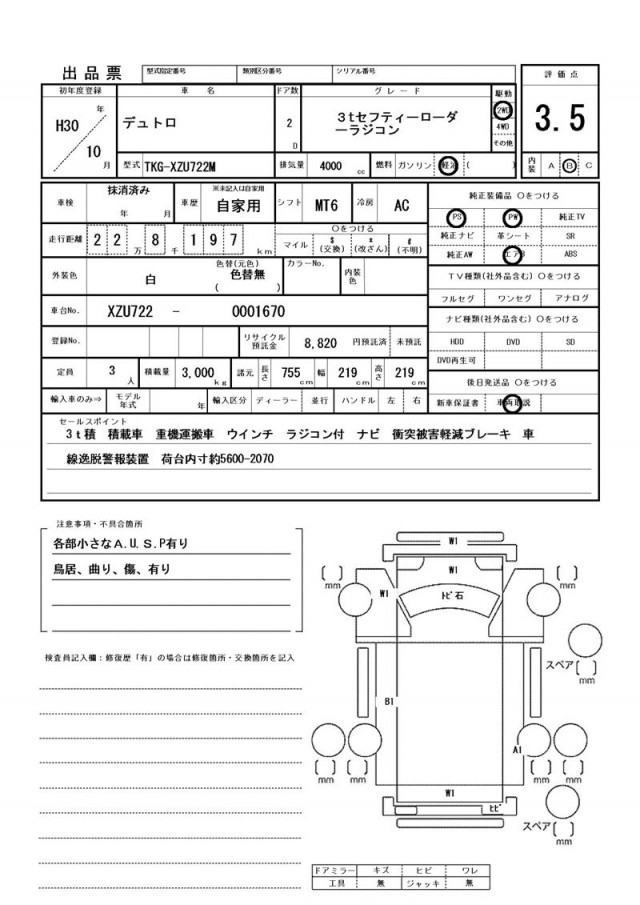 出品票 型式指定番号 類別区分番号 シリアル番号
初年度登録 車名 ドア数 グレード 駆動 評価点
H30 年 10 月 デュトロ 2 D 3tセフティーローダ
ーラジコン
2WD
4WD
その他
3.5
型式 TKG-XZU722M 排気量 4000 cc 燃料 ガソリン 軽油 ( ) 内装 A B C
車検 抹消済み 年 月 車歴 ※未記入は自家用 自家用 シフト MT6 冷房 AC 純正装備品 ○をつける
PS PW 純正TV
走行距離 22万 8千 197 km ○をつける
マイル $(交換) *(改ざん) #(不明)
純正ナビ 革シート SR
純正AW エアB ABS
外装色 白 色替(元色) 色替無 ( ) カラーNo. 内装色
TV種類(社外品含む) ○をつける
フルセグ ワンセグ アナログ
車台No. XZU722 - 0001670
ナビ種類(社外品含む) ○をつける
登録No. リサイクル預託金 8,820 円預託済 未預託
HDD DVD SD
DVD再生可
定員 3 人 積載量 3,000 kg 諸元 長さ 755 cm 幅 219 cm 高さ 219 cm
後日発送品 ○をつける
輸入車のみ⇒ モデル年式 年 輸入区分 ディーラー 並行 ハンドル 左 右
新車保証書 車両取説
セールスポイント
3t積 積載車 重機運搬車 ウインチ ラジコン付 ナビ 衝突被害軽減ブレーキ 車
線逸脱警報装置 荷台内寸約5600-2070
注意事項・不具合箇所
各部小さなA.U.S.P有り
鳥居、曲り、傷、有り
検査員記入欄:修復歴「有」の場合は修復箇所・交換箇所を記入
W1
W1
[ ] mm
W1
トビ石
[ ] mm
スペア [ ] mm
B1
A1
[ ] mm
[ ] mm
[ ] mm
[ ] mm
W1
ヒビ
スペア [ ] mm
ドアミラー キズ ヒビ ワレ
工具 無 ジャッキ 無